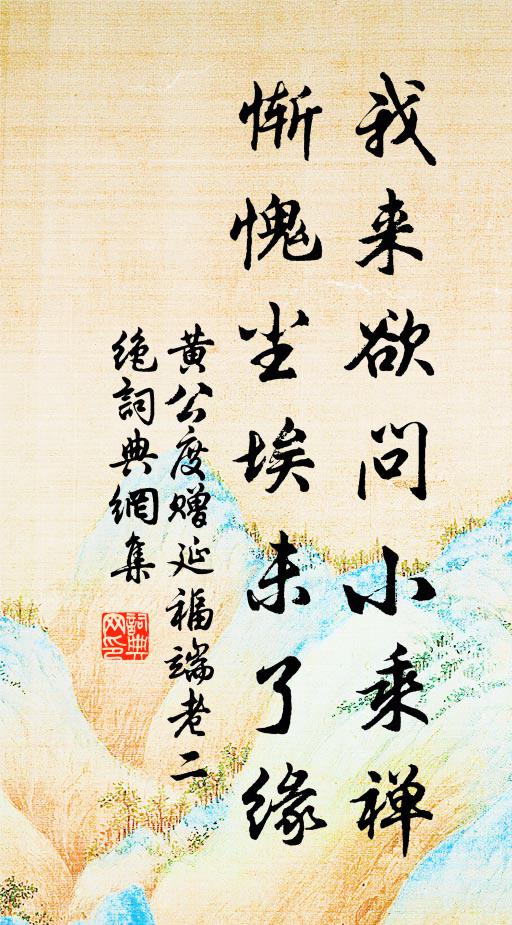 我来欲问小乘禅
惭愧尘埃未了缘
黄公度赠延福端老二
绝詞典網集
詞典
网印